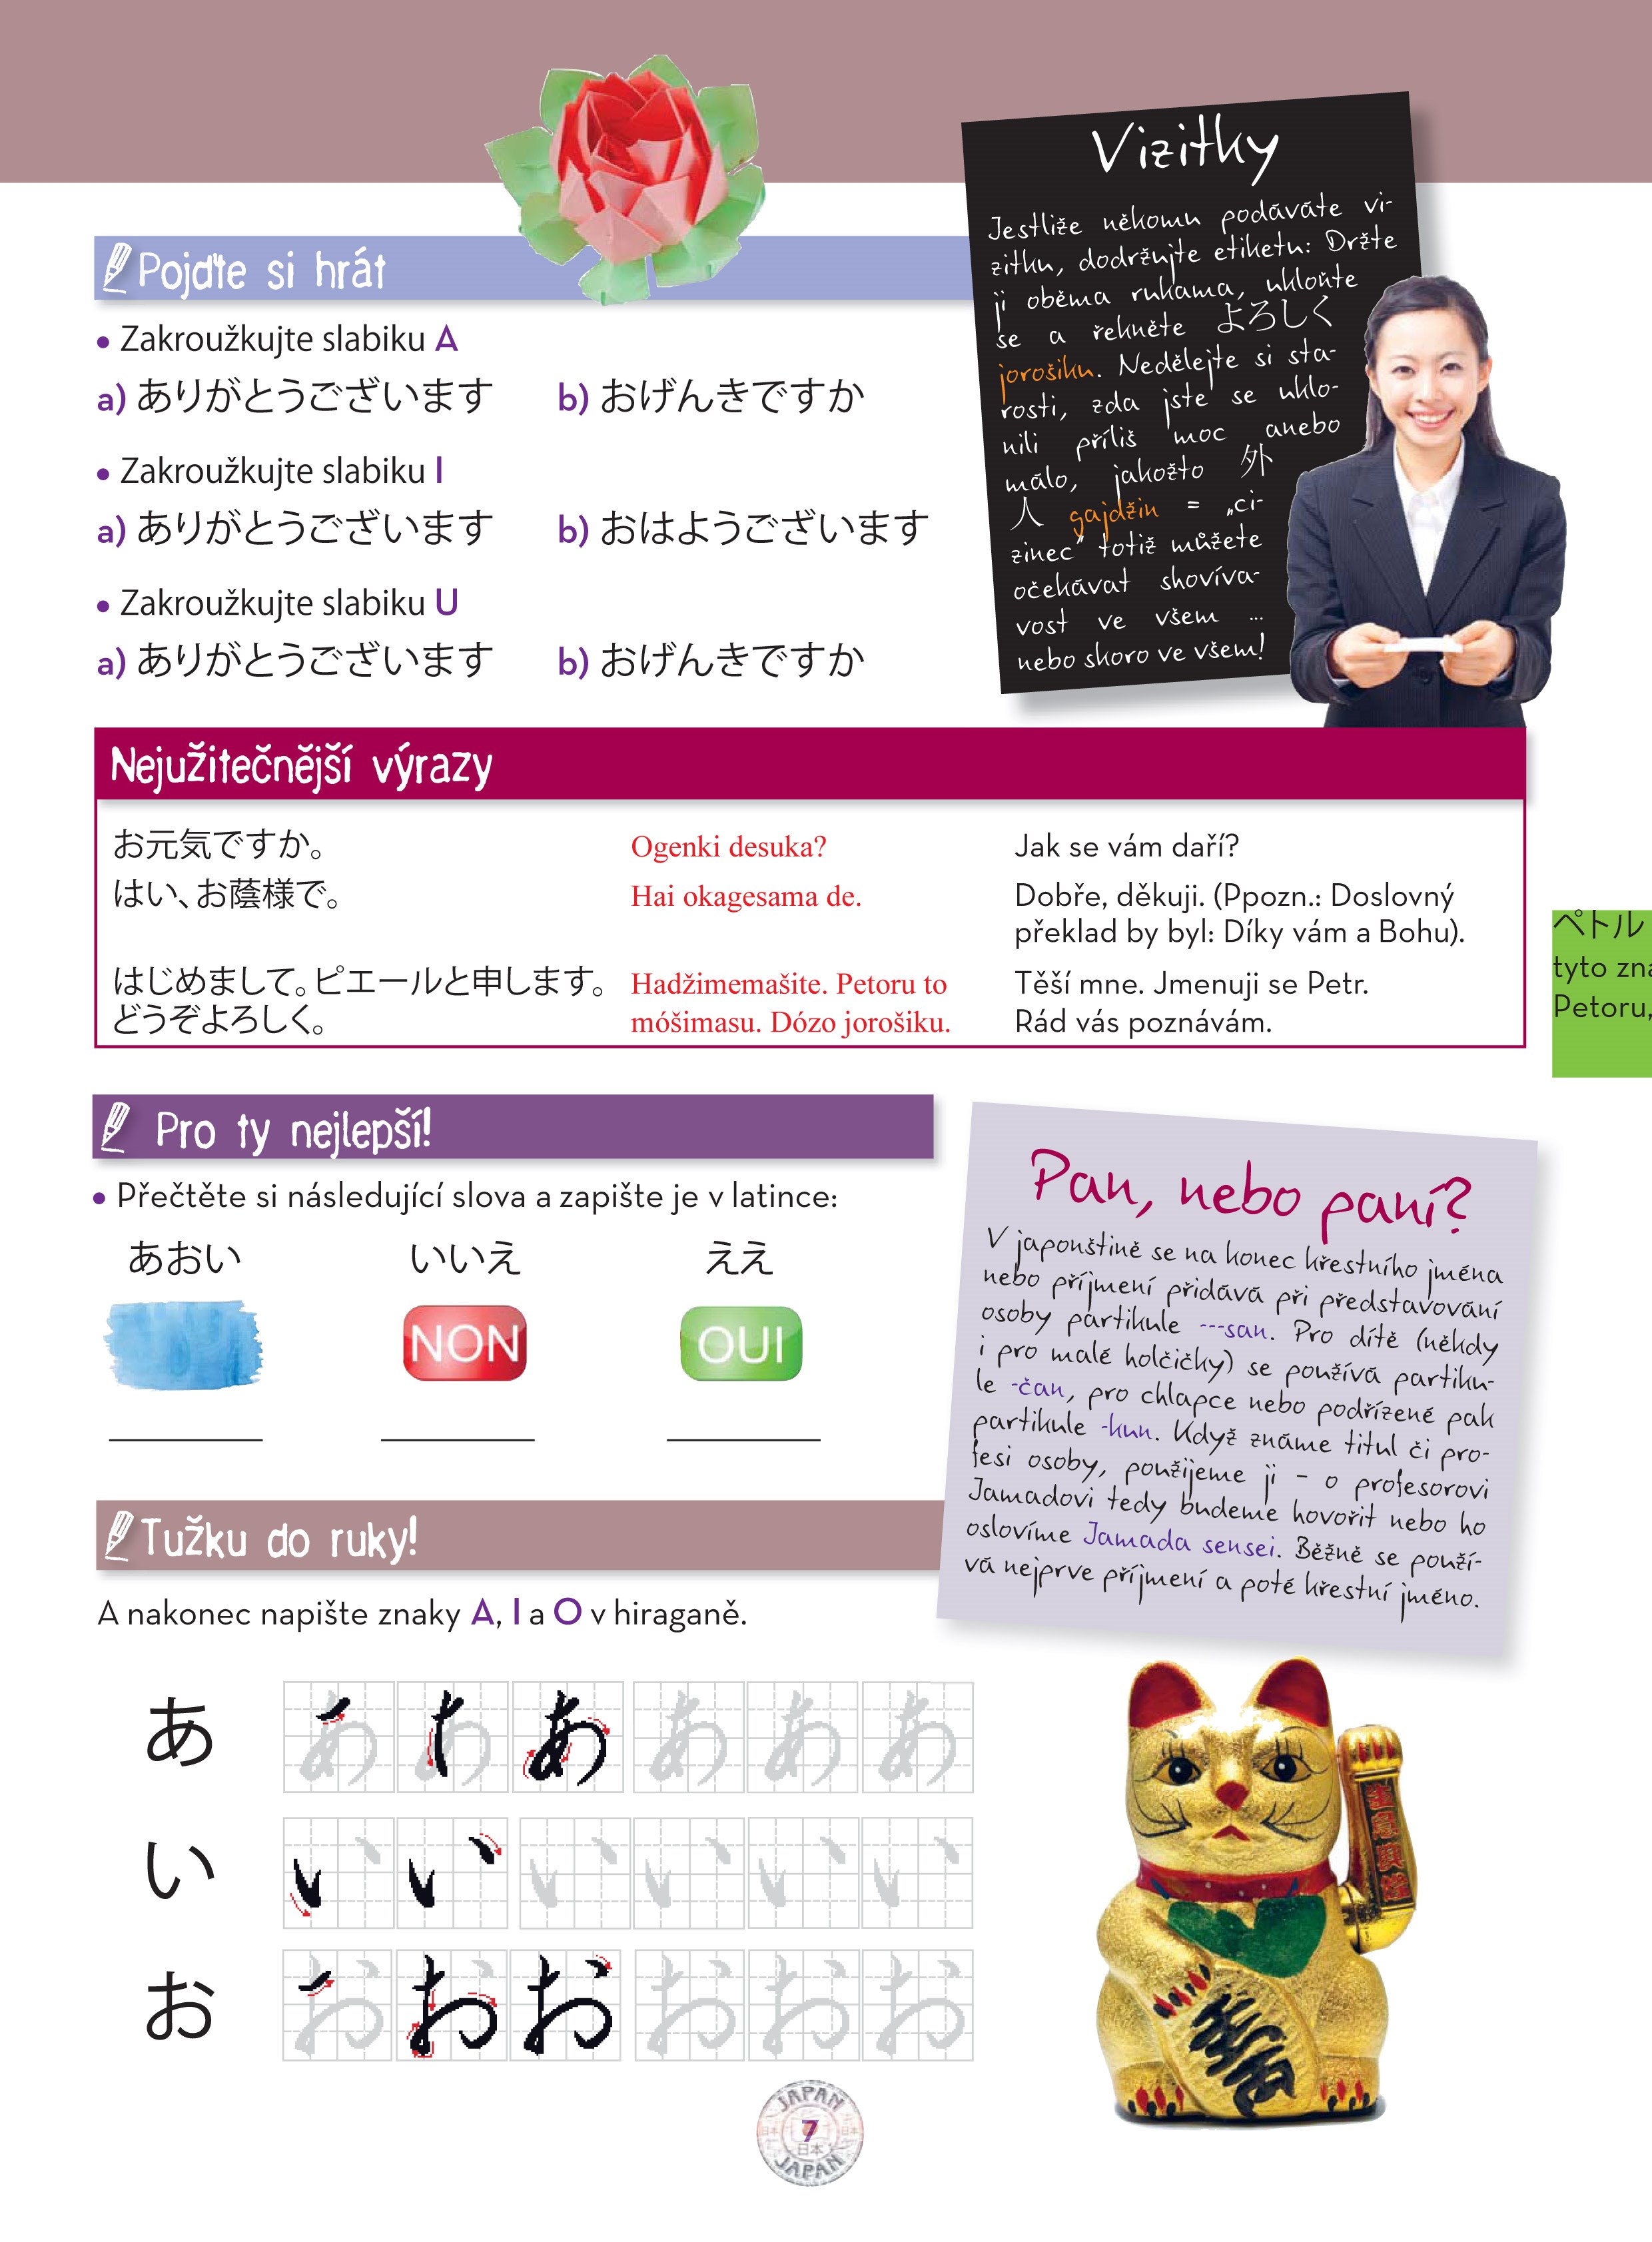 Pojďte si hrát
• Zakroužkujte slabiku A
a) ありがとうございます b) おげんきですか
• Zakroužkujte slabiku I
a) ありがとうございます b) おはようございます
• Zakroužkujte slabiku U
a) ありがとうございます b) おげんきですか
Vizitky
Jestliže někomu podáváte vi-
zitku, dodržujte etiketu: Držte
ji oběma rukama, ukloňte
se a řekněte よろしく
jorošiku. Nedělejte si sta-
rosti, zda jste se uklo-
nili příliš moc anebo
málo, jakožto 外
人 gajdžin = „ci-
zinec“ totiž můžete
očekávat shovíva-
vost ve všem ...
nebo skoro ve všem!
Nejužitečnější výrazy
お元気ですか。 Ogenki desuka? Jak se vám daří?
はい、お蔭様で。 Hai okagesama de. Dobře, děkuji. (Ppozn.: Doslovný
překlad by byl: Díky vám a Bohu).
はじめまして。ピエールと申します。 Hadžimemašite. Petoru to Těší mne. Jmenuji se Petr.
どうぞよろしく。 móšimasu. Dózo jorošiku. Rád vás poznávám.
ペトル
tyto zna
Petoru,
Pro ty nejlepší!
• Přečtěte si následující slova a zapište je v latince:
あおい いいえ ええ
NON OUI
Pan, nebo paní?
V japonštině se na konec křestního jména
nebo příjmení přidává při představování
osoby partikule ---san. Pro dítě (někdy
i pro malé holčičky) se používá partiku-
le -čan, pro chlapce nebo podřízené pak
partikule -kun. Když známe titul či pro-
fesi osoby, použijeme ji – o profesorovi
Jamadovi tedy budeme hovořit nebo ho
oslovíme Jamada sensei. Běžně se použí-
vá nejprve příjmení a poté křestní jméno.
Tužku do ruky!
A nakonec napište znaky A, I a O v hiraganě.
あ あ あ あ あ あ あ
い い い い い い い
お お お お お お お
JAPAN
日本 7 日本
日本
JAPAN